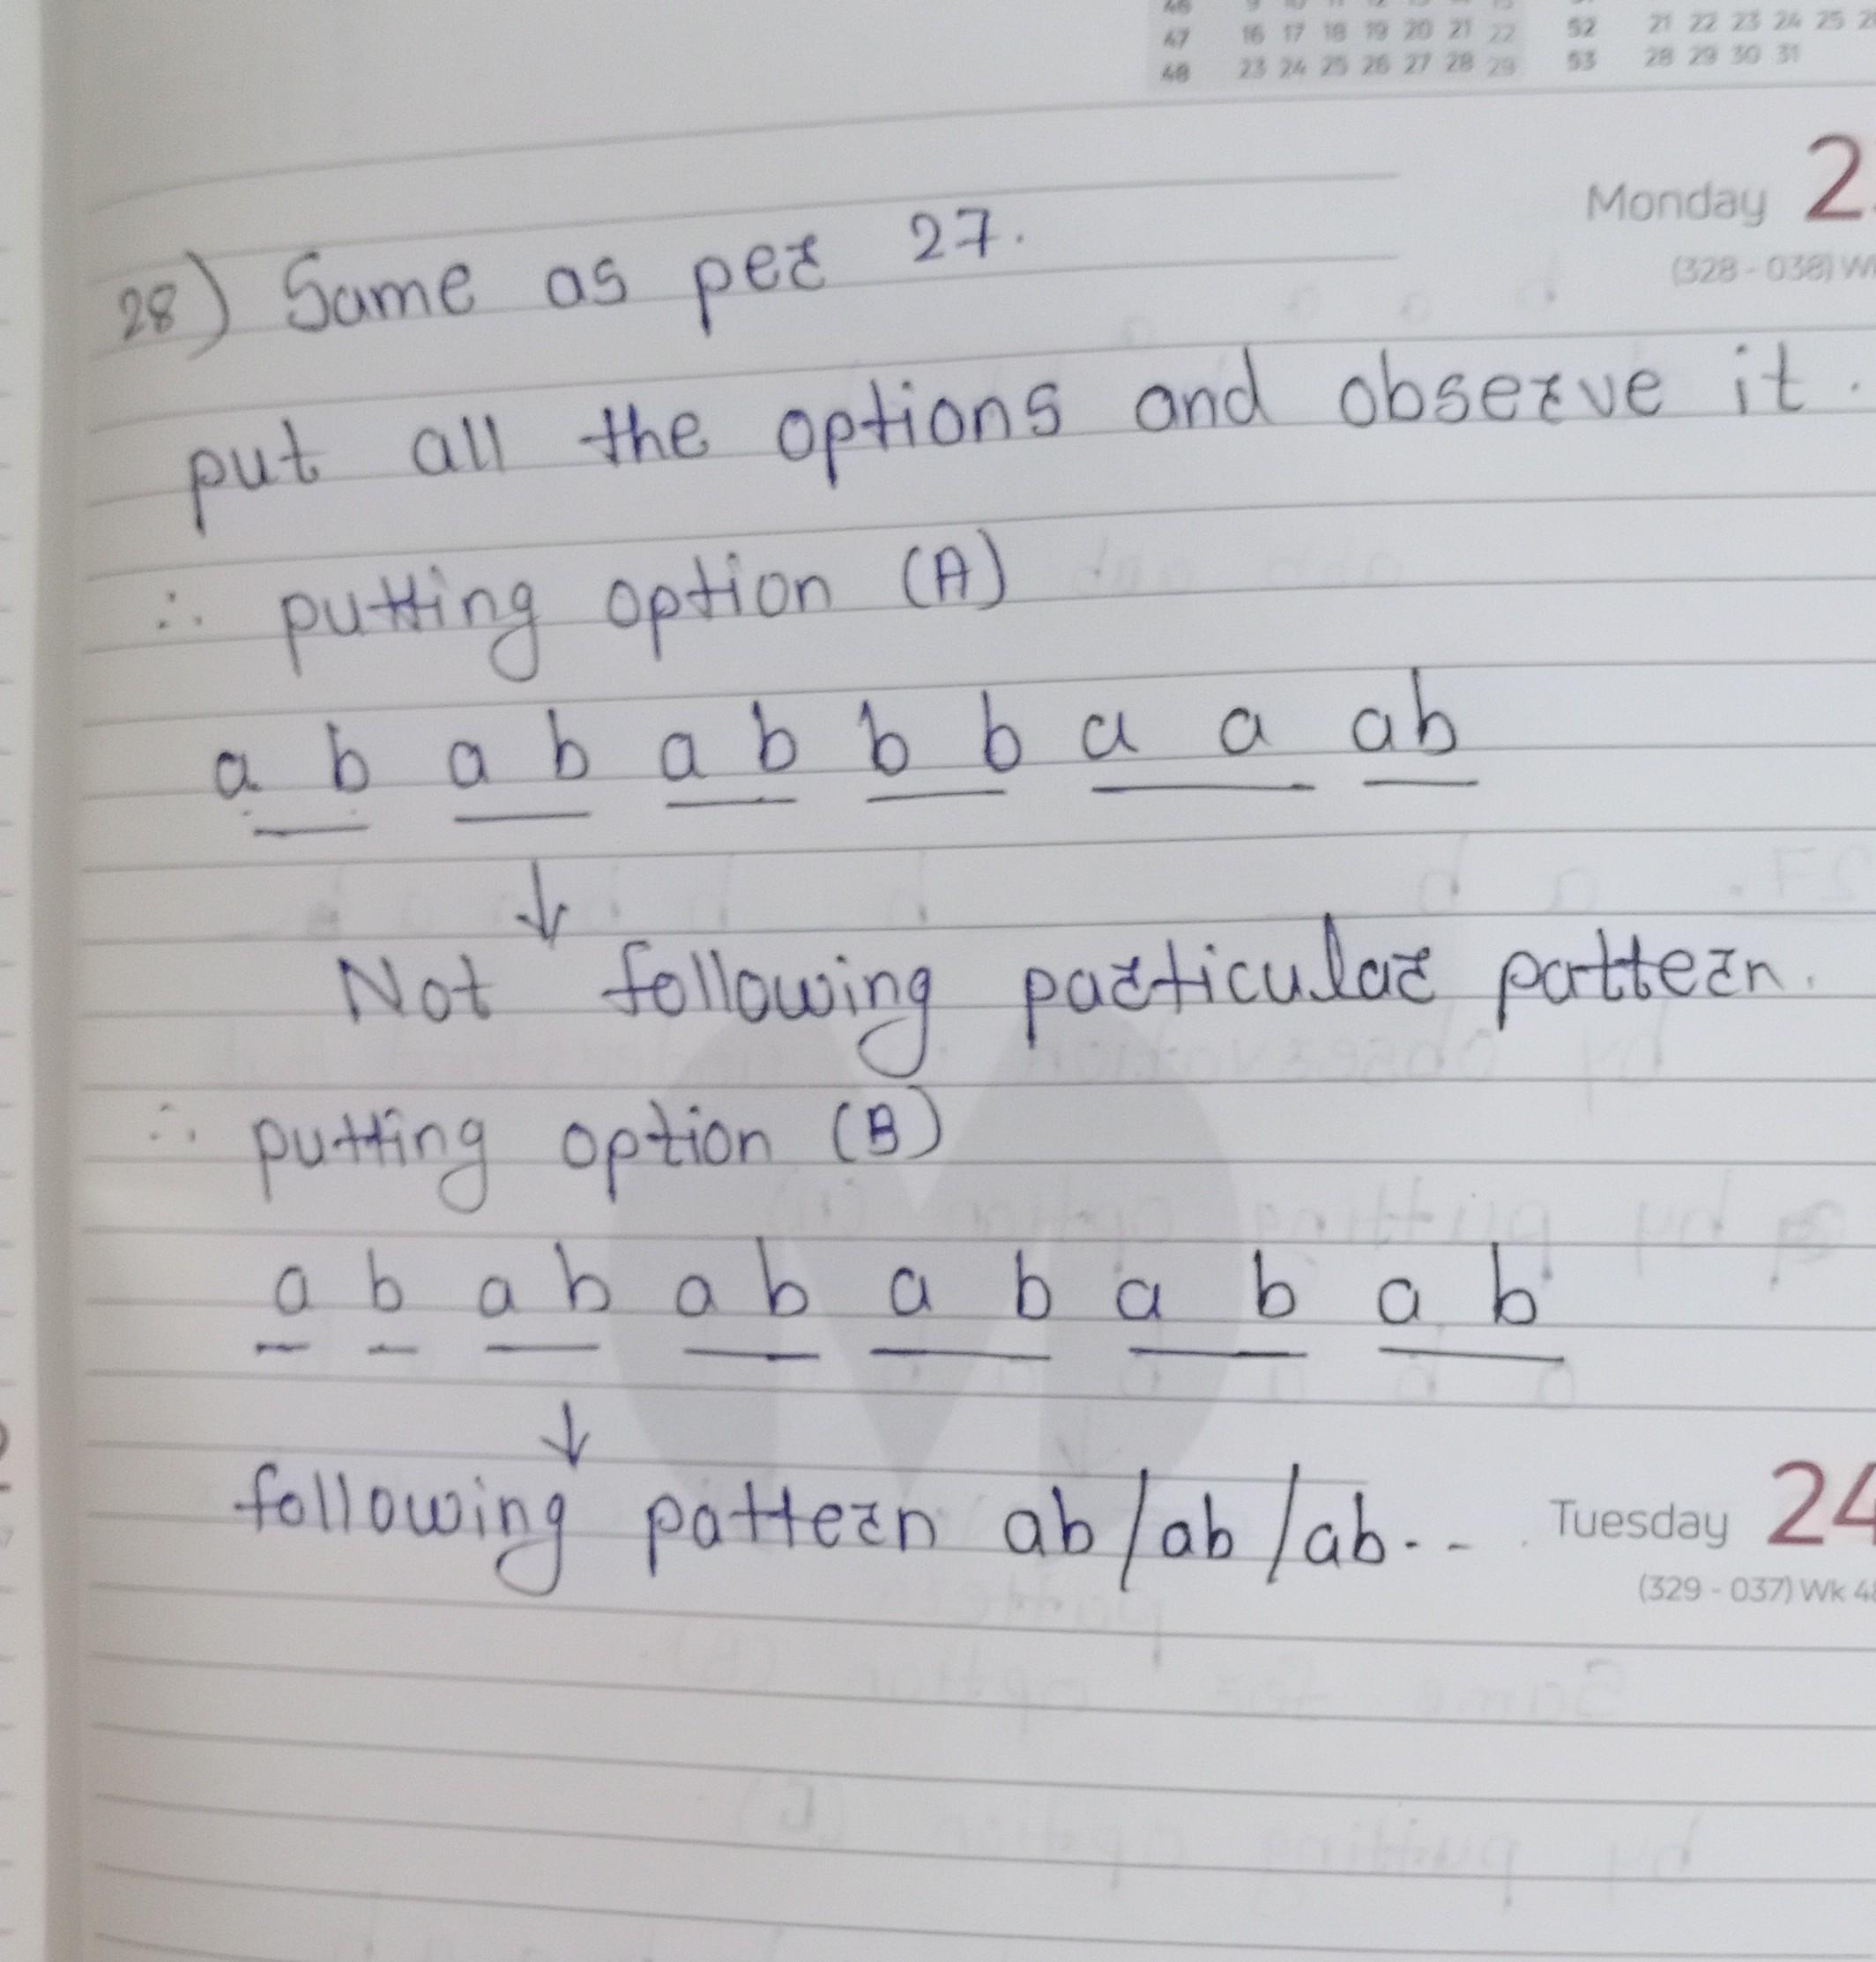 46 9 10 11 12 13 14 15
47 16 17 18 19 20 21 22 52 21 22 23 24 25
48 23 24 25 26 27 28 29 53 28 29 30 31
Monday 2
(328 - 038) W
28) Same as per 27.
put all the options and observe it.
∴ putting option (A)
a b a b a b b b a a ab
↓
Not following particular pattern.
∴ putting option (B)
a b a b a b a b a b a b
↓
following pattern ab/ab/ab..
Tuesday 24
(329 - 037) Wk 48